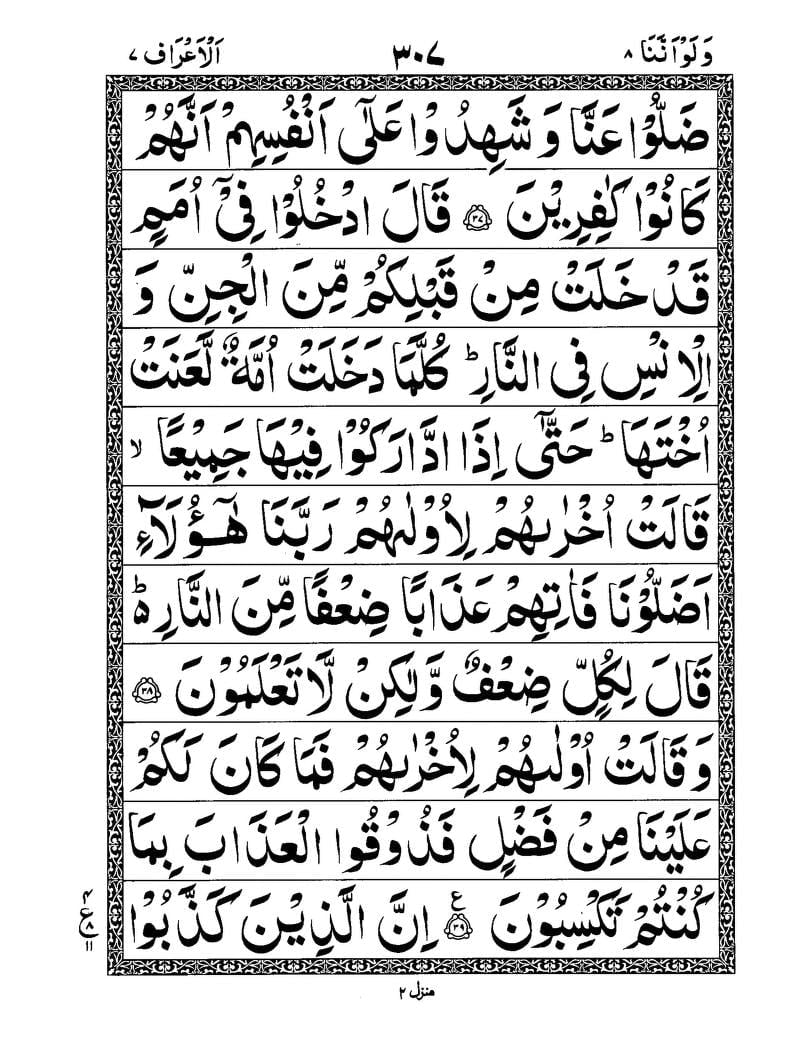 وَلَوْاَنَّنَا ۸ ۳۰۷ اَلْاَعْرَاف ۷
ضَلُّوْا عَنَّا وَ شَهِدُوْا عَلٰٓى اَنْفُسِهِمْ اَنَّهُمْ
كَانُوْا كٰفِرِيْنَ ۳۷ قَالَ ادْخُلُوْا فِيْٓ اُمَمٍ
قَدْ خَلَتْ مِنْ قَبْلِكُمْ مِّنَ الْجِنِّ وَ
الْاِنْسِ فِي النَّارِ ؕ كُلَّمَا دَخَلَتْ اُمَّةٌ لَّعَنَتْ
اُخْتَهَا ؕ حَتّٰۤى اِذَا ادَّارَكُوْا فِيْهَا جَمِيْعًا ۙ
قَالَتْ اُخْرٰىهُمْ لِاُوْلٰىهُمْ رَبَّنَا هٰٓؤُلَآءِ
اَضَلُّوْنَا فَاٰتِهِمْ عَذَابًا ضِعْفًا مِّنَ النَّارِ ؕ۬
قَالَ لِكُلٍّ ضِعْفٌ وَّلٰكِنْ لَّا تَعْلَمُوْنَ ۳۸
وَ قَالَتْ اُوْلٰىهُمْ لِاُخْرٰىهُمْ فَمَا كَانَ لَكُمْ
عَلَيْنَا مِنْ فَضْلٍ فَذُوْقُوا الْعَذَابَ بِمَا
كُنْتُمْ تَكْسِبُوْنَ ۳۹ ع اِنَّ الَّذِيْنَ كَذَّبُوْا
۴
ع ۸
۱۱
منزل ۲